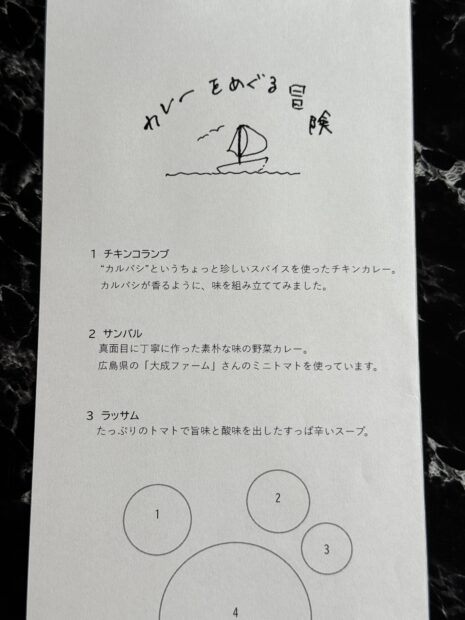 カレーをめぐる冒険
1 チキンコランブ
“カルパシ”というちょっと珍しいスパイスを使ったチキンカレー。
カルパシが香るように、味を組み立ててみました。
2 サンバル
真面目に丁寧に作った素朴な味の野菜カレー。
広島県の「大成ファーム」さんのミニトマトを使っています。
3 ラッサム
たっぷりのトマトで旨味と酸味を出したすっぱ辛いスープ。
1
2
3
4